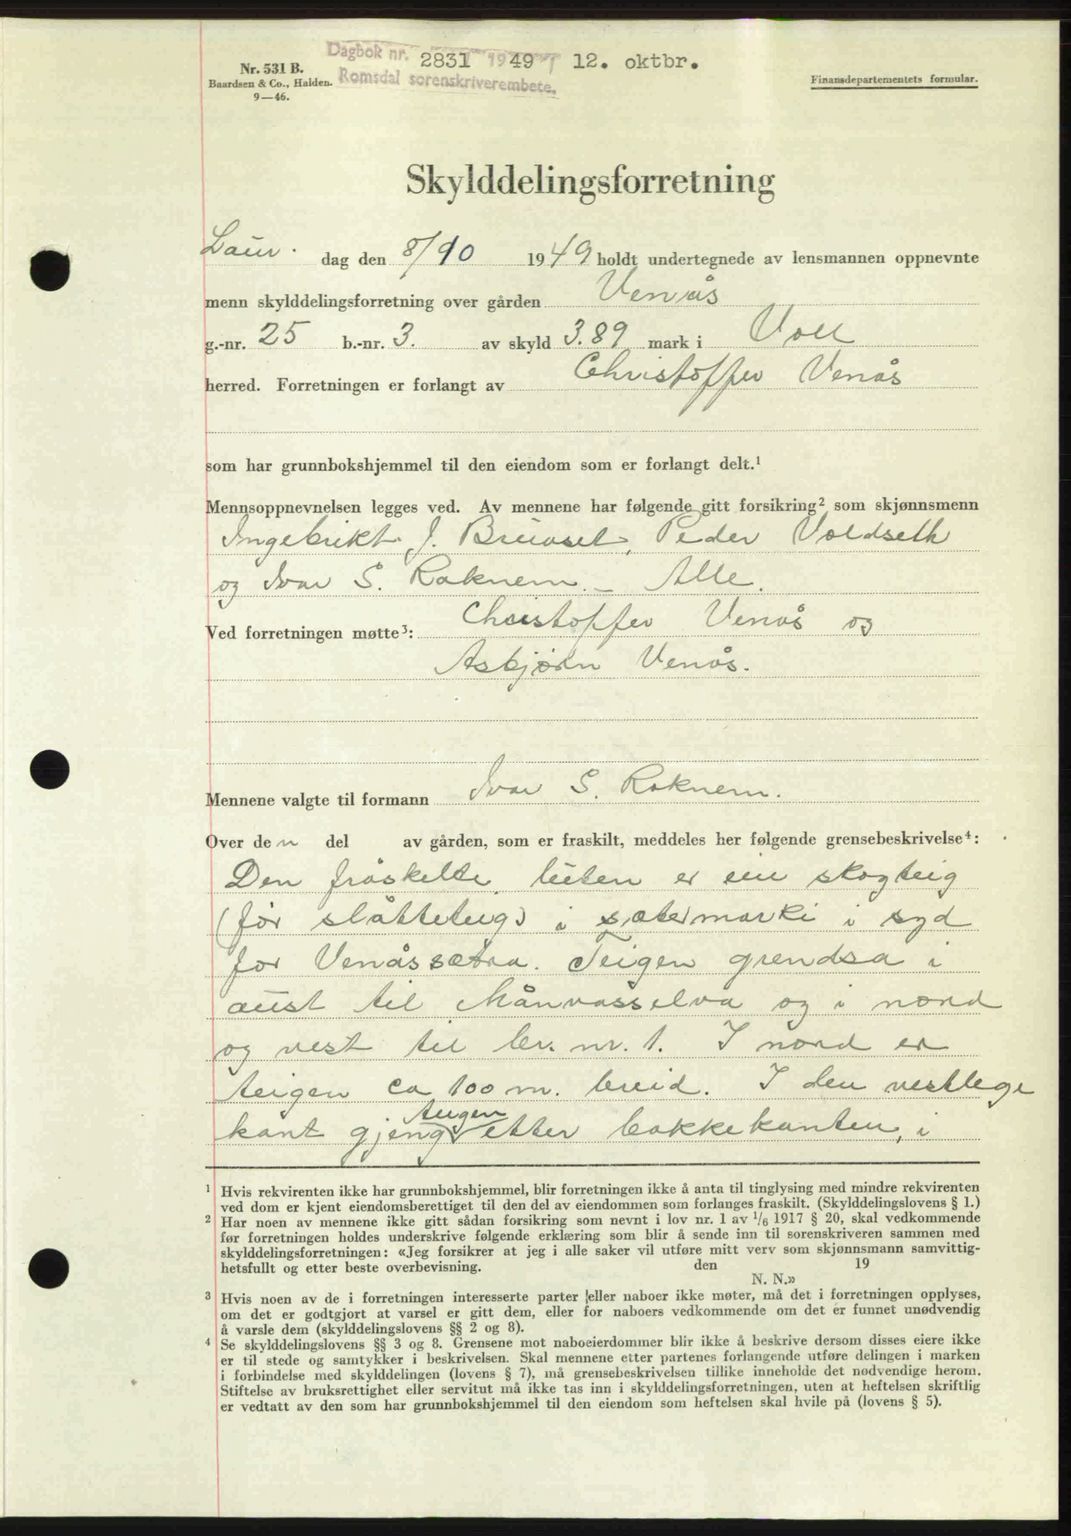 Dagbok nr. 2831 1949 12. oktbr.
Romsdal sorenskriverembete.
Nr. 531 B.
Baardsen & Co., Halden.
9—46.
Finansdepartementets formular.
Skylddelingsforretning
Laur. dag den 8/10 1949 holdt undertegnede av lensmannen oppnevnte
menn skylddelingsforretning over gården Venås
g.-nr. 25 b.-nr. 3. av skyld 3.89 mark i Voll
herred. Forretningen er forlangt av Christoffer Venås
som har grunnbokshjemmel til den eiendom som er forlangt delt.¹
Mennsoppnevnelsen legges ved. Av mennene har følgende gitt forsikring² som skjønnsmenn
Ingebrikt J. Bruaset, Peder Voldseth
og Ivar S. Raknem. – Alle.
Ved forretningen møtte³: Christoffer Venås og
Asbjørn Venås.
Mennene valgte til formann Ivar S. Raknem.
Over den del av gården, som er fraskilt, meddeles her følgende grensebeskrivelse⁴:
Den fråskelte luten er ein skogteig
(før slåtteteug) i sætermarki i syd
for Venåssætra. Teigen grendsa i
aust til Månvasselva og i nord
og vest til br. nr. 1. I nord er
teigen ca 100 m. breid. I den vestlege
kant gjeng teigen etter bakkekanten, i
¹ Hvis rekvirenten ikke har grunnbokshjemmel, blir forretningen ikke å anta til tinglysing med mindre rekvirenten
ved dom er kjent eiendomsberettiget til den del av eiendommen som forlanges fraskilt. (Skylddelingslovens § 1.)
² Har noen av mennene ikke gitt sådan forsikring som nevnt i lov nr. 1 av 1/6 1917 § 20, skal vedkommende
før forretningen holdes underskrive følgende erklæring som blir å sende inn til sorenskriveren sammen med
skylddelingsforretningen: «Jeg forsikrer at jeg i alle saker vil utføre mitt verv som skjønnsmann samvittig-
hetsfullt og etter beste overbevisning. den 19
N. N.»
³ Hvis noen av de i forretningen interesserte parter eller naboer ikke møter, må det i forretningen opplyses,
om det er godtgjort at varsel er gitt dem, eller for naboers vedkommende om det er funnet unødvendig
å varsle dem (skylddelingslovens §§ 2 og 8).
⁴ Se skylddelingslovens §§ 3 og 8. Grensene mot naboeierdommer blir ikke å beskrive dersom disses eiere ikke
er til stede og samtykker i beskrivelsen. Skal mennene etter partenes forlangende utføre delingen i marken
i forbindelse med skylddelingen (lovens § 7), må grensebeskrivelsen tillike inneholde det nødvendige herom.
Stiftelse av bruksrettighet eller servitut må ikke tas inn i skylddelingsforretningen, uten at heftelsen skriftlig
er vedtatt av den som har grunnbokshjemmel til den eiendom som heftelsen skal hvile på (lovens § 5).